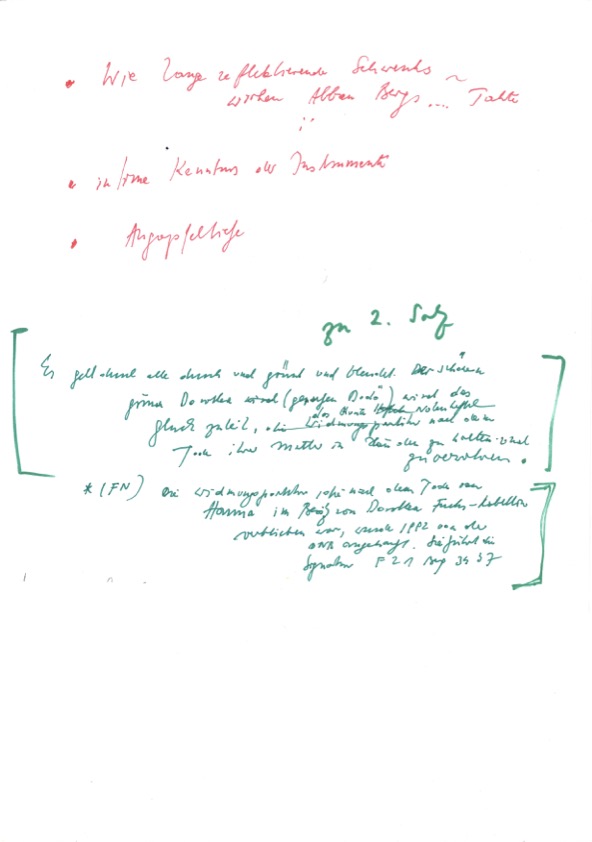 • Wie lange reflektierende Schwenks
wirken Alban Bergs .... Takte
• intime Kenntnis der Instrumente
• Augapfeltiefe
zu 2. Satz
Es geht durch alle durch und grünt und blendet. Der schönen
grünen Dorothea wird (gerufen Dodo) wird das
Glück zuteil, die Widmungspartitur nach dem
das Notenheft
Tode ihrer Mutter in Händen zu halten und
zu verwahren.
* (FN) Die Widmungspartitur, die nach dem Tode von
Hanna im Besitz von Dorothea Fuchs-Robettin
verblieben war, wurde 1992 von der
ÖNB angekauft. Sie führt die
Signatur F 21 Berg 3437